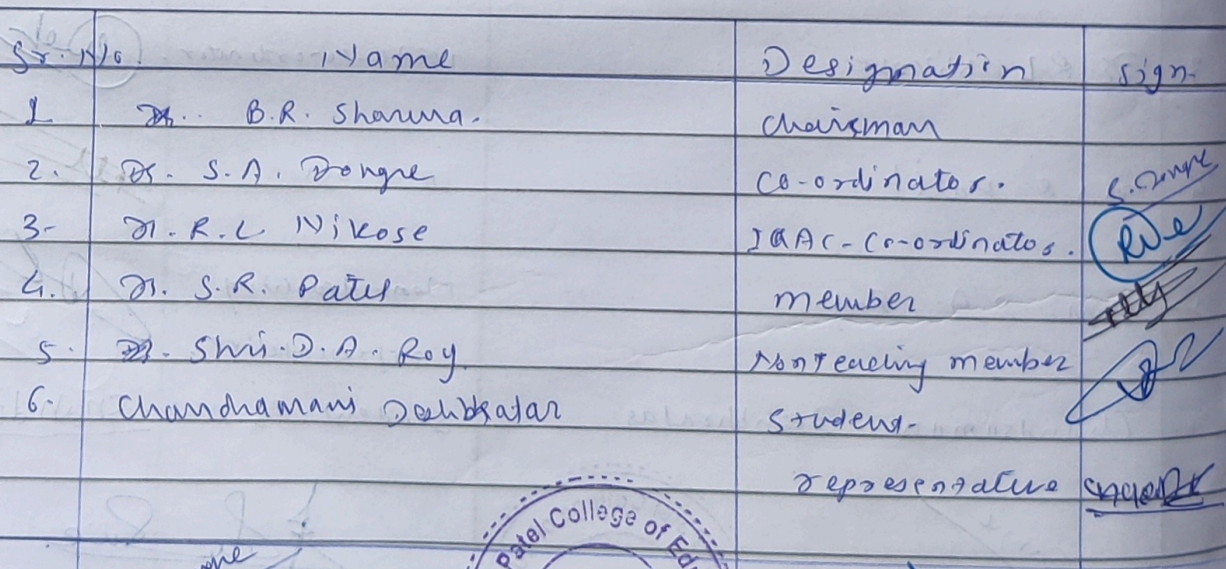 Sr. No. Name Designation Sign.
1 B.R. Sharma. Chairman
2. Dr. S.A. Dongre Co-ordinator. S. Dongre
3- Dr. R.L Nikose IQAC-Co-ordinator.
4. Dr. S.R. Patel member
5. Shri. D. A. Roy Nonteaching member
6. Chandramani Student-
representative
Patel College of Edu